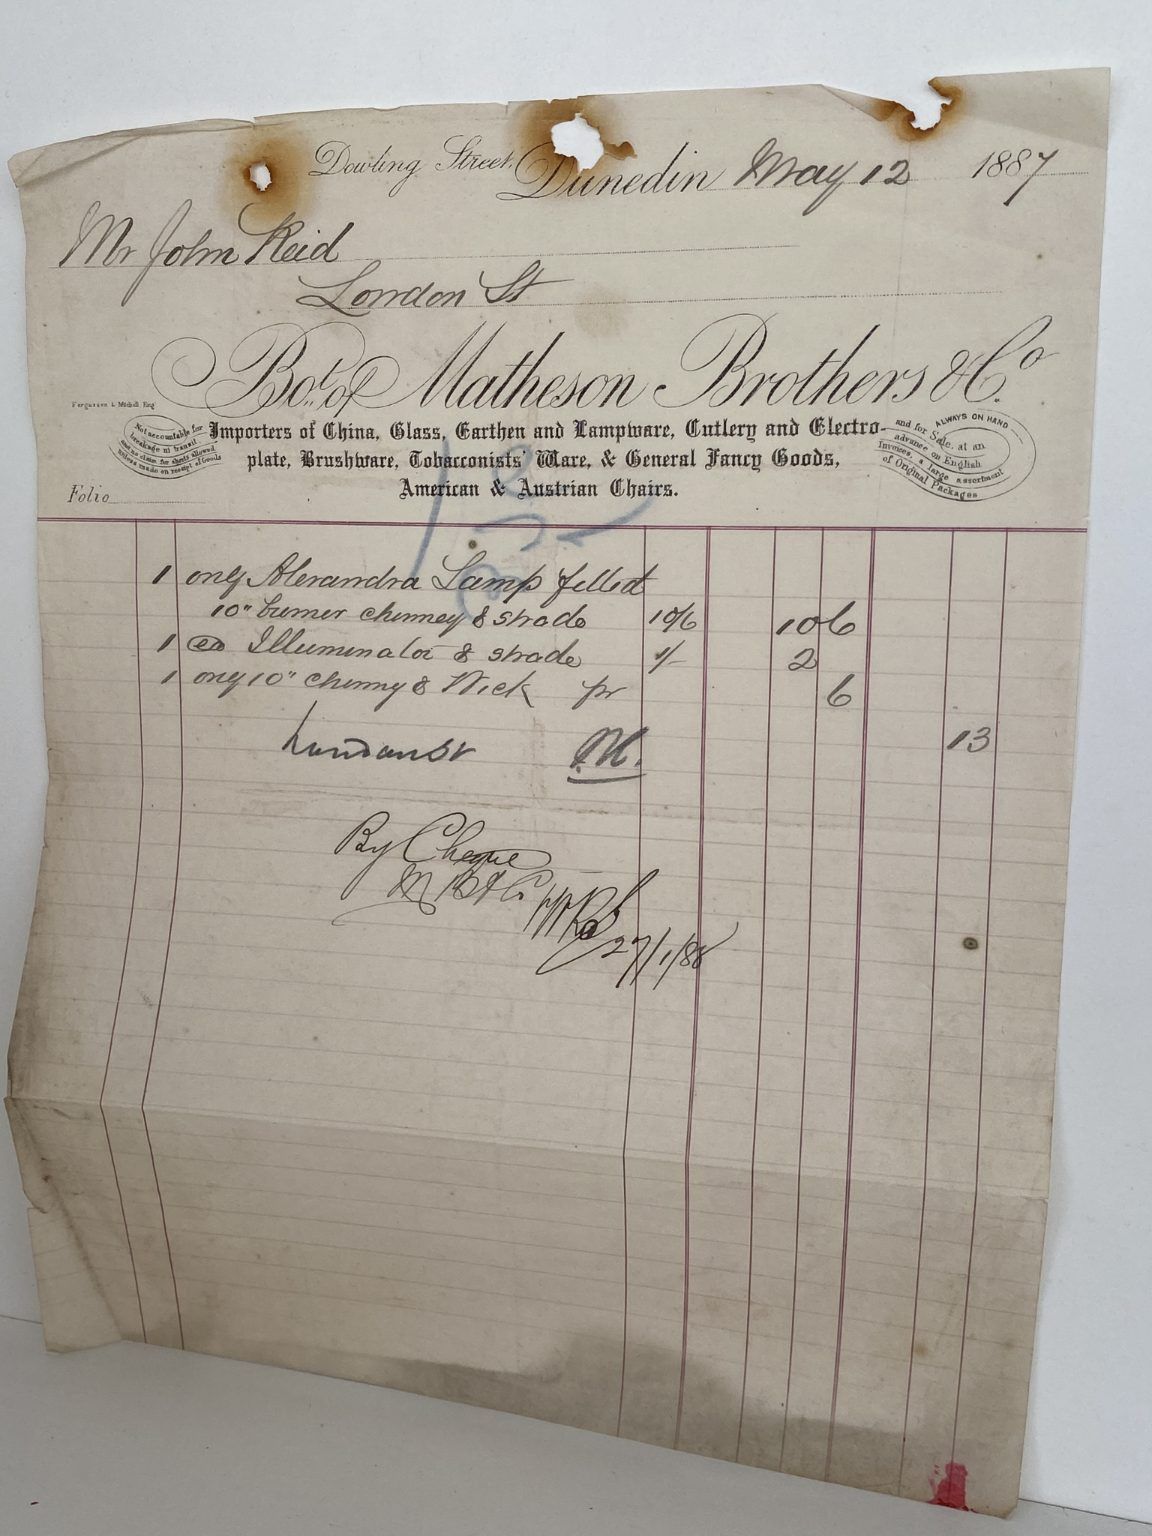 Dowling Street, Dunedin May 12 1887
Mr John Reid
London St
Bot. of Matheson Brothers & Co.
Fergusson & Mitchell Eng
Not accountable for
breakage in transit
and no claim for shorts allowed
unless made on receipt of Goods
Importers of China, Glass, Earthen and Lampware, Cutlery and Electro-
plate, Brushware, Tobacconists' Ware, & General Fancy Goods,
American & Austrian Chairs.
ALWAYS ON HAND
and for Sale, at an
advance on English
Invoices, a large assortment
of Original Packages
Folio
1 only Alexandra Lamp filled
10" burner chimney & shade 10/6 10 6
1 Illuminator & shade 2
1 only 10" chimny & Wick pr 6
London St M. 13
By Cheque
M B & Co
27/1/88